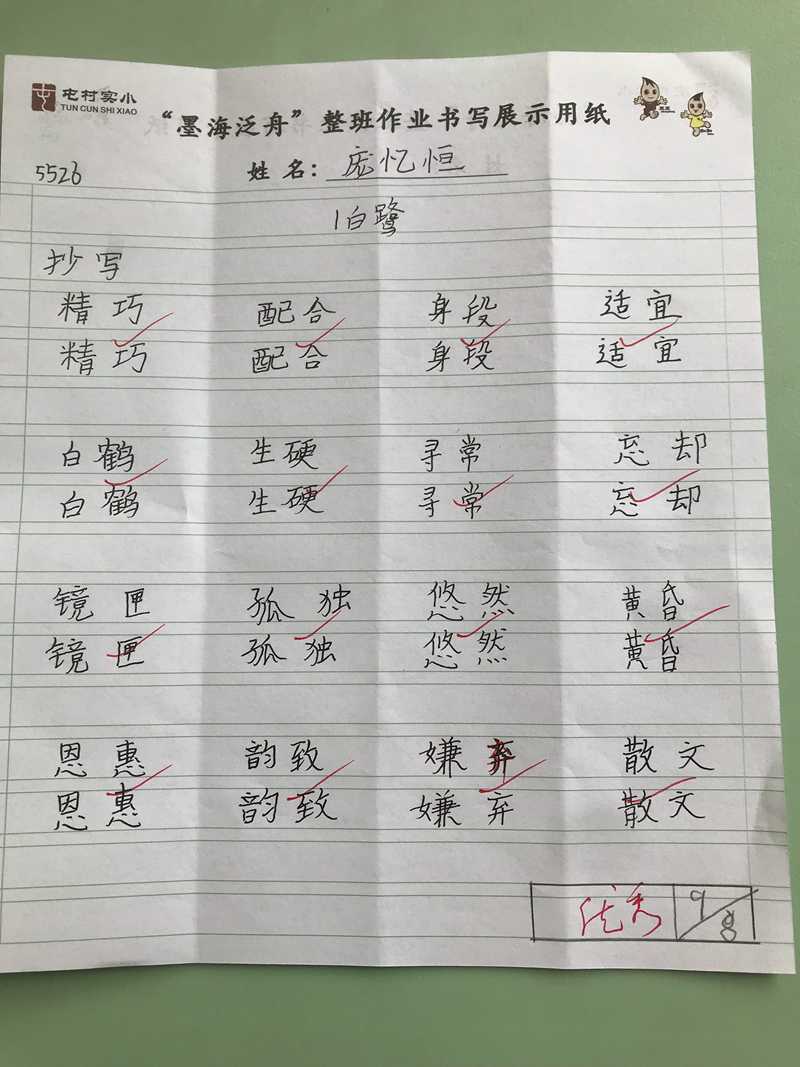 屯村实小
TUN CUN SHI XIAO
“墨海泛舟”整班作业书写展示用纸
5526 姓名：庞忆恒
1白鹭
抄写
精巧 配合 身段 适宜
精巧 配合 身段 适宜
白鹤 生硬 寻常 忘却
白鹤 生硬 寻常 忘却
镜匣 孤独 悠然 黄昏
镜匣 孤独 悠然 黄昏
恩惠 韵致 嫌弃 散文
恩惠 韵致 嫌弃 散文
优秀 9/8